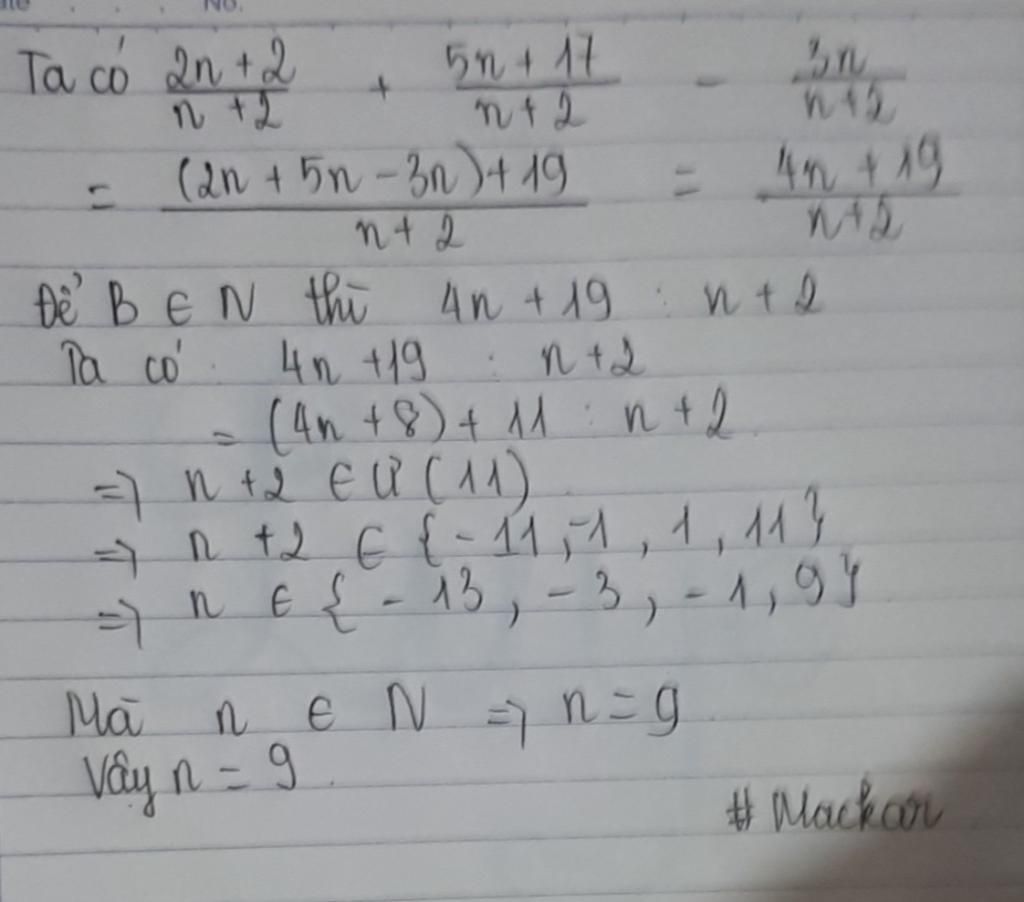 No.
Ta có (2n + 2)/(n + 2) + (5n + 17)/(n + 2) - 3n/(n+2)
= ((2n + 5n - 3n) + 19)/(n + 2) = (4n + 19)/(n+2)
Để B ∈ N thì 4n + 19 : n + 2
Ta có : 4n +19 : n+2
= (4n + 8) + 11 : n + 2
=> n +2 ∈ Ư (11)
=> n +2 ∈ {-11, -1, 1, 11}
=> n ∈ {-13, -3, -1, 9}
Mà n ∈ N => n = 9
Vậy n = 9.
# Mackar